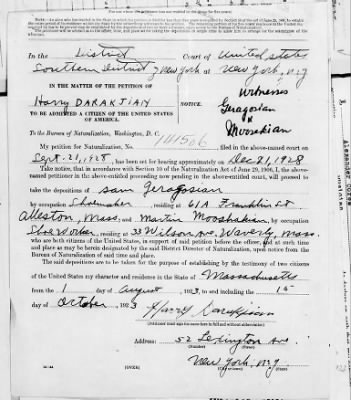 In the District Court of United States
Southern District of New York at New York, N.Y.
IN THE MATTER OF THE PETITION OF
Harry DARAKJIAN
TO BE ADMITTED A CITIZEN OF THE UNITED STATES
OF AMERICA.
NOTICE.
Witnesses
Geragosian
Mooskian
To the Bureau of Naturalization, Washington, D. C.
My petition for Naturalization, No. 141506 filed in the above-named court on
Sept. 21, 1928, has been set for hearing approximately on Dec 21, 1928
Take notice, that in accordance with Section 10 of the Naturalization Act of June 29, 1906, I, the above-
named petitioner in the above-entitled proceeding now pending in the above-entitled court, will proceed
to take the depositions of Sam Geragosian
by occupation Shoemaker, residing at 61A Franklin St
Allston, Mass, and Martin Mooshakian, by occupation
Shoe Worker, residing at 33 Wilson Av, Waverly, Mass.
who are both citizens of the United States, in support of said petition before the officer, and at such time
and place as may be herein designated by the said District Director of Naturalization, upon notice from the
Bureau of Naturalization of said time and place.
The said depositions are to be taken for the purpose of establishing by the testimony of two citizens
of the United States my character and residence in the State of Massachusetts
from the 1 day of August, 1923, to and including the 15
day of October, 1923 Harry Darakjian
(Petitioner must sign his name here in full and without abbreviation)
Address: 52 Lexington Av
(Number) (Street)
New York, N.Y
(OVER)
Alexander Gorek